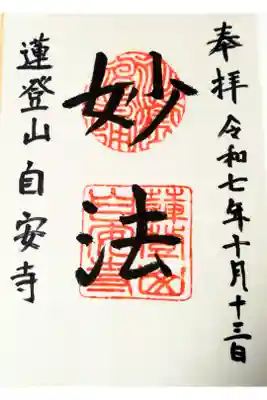 奉拝 令和七年十月十三日
妙法
蓮登山自安寺